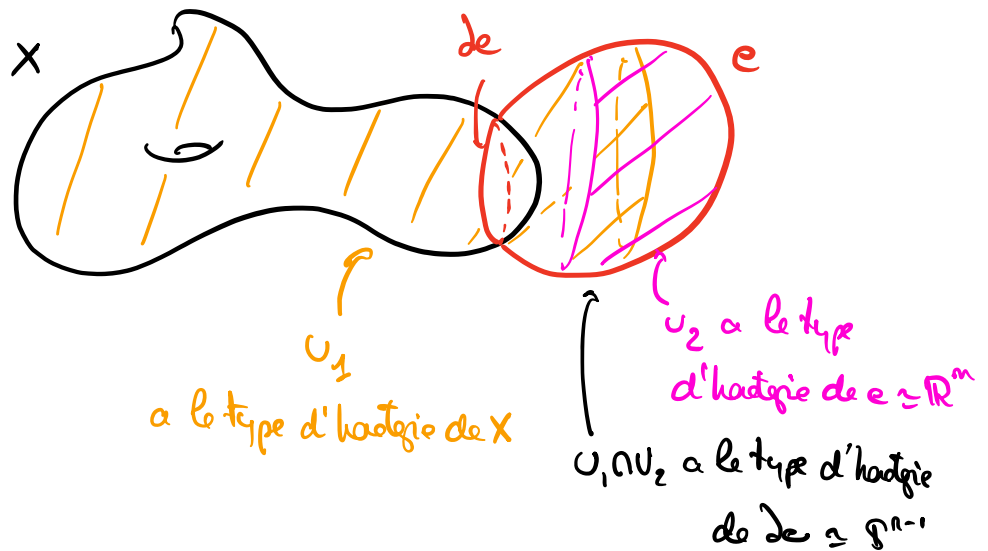 X
∂e
e
U₁
a le type d'hωtopie de X
U₂ a le type
d'hωtopie de e ≃ ℝⁿ
U₁∩U₂ a le type d'hωtopie
de ∂e ≃ Sⁿ⁻¹